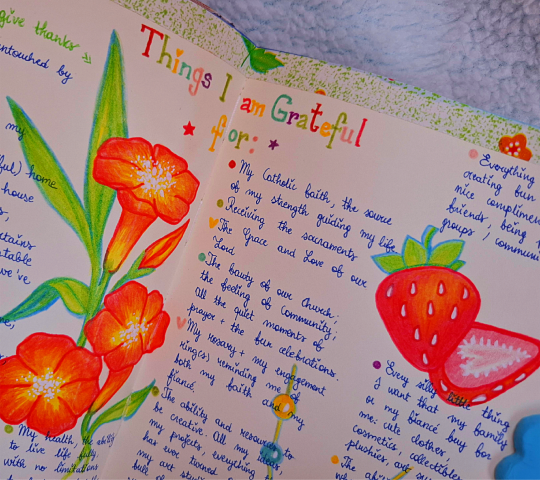 give thanks
untouched by
my
ful) home
house
we've
me,
My health, the ability
to live life fully,
with no limitations
Things I am Grateful
for:
My Catholic faith, the source
of my strength guiding my life
Receiving the sacraments
The Grace and Love of our
Lord
The beauty of our Church;
the feeling of Community;
All the quiet moments of
prayer + the fun celebrations.
My rosary + my engagement
ring(s) reminding me of
both my faith and my
fiancé.
The ability and resources to
be creative. All my ideas,
my projects, everything
has ever turned
my art
Everything
creating fun
nice complimen
friends, being
groups / communi
Every silly little thing
I want that my family
or my fiancé buy for
me: cute clothes,
cosmetics, collectibles
plushies, art
The